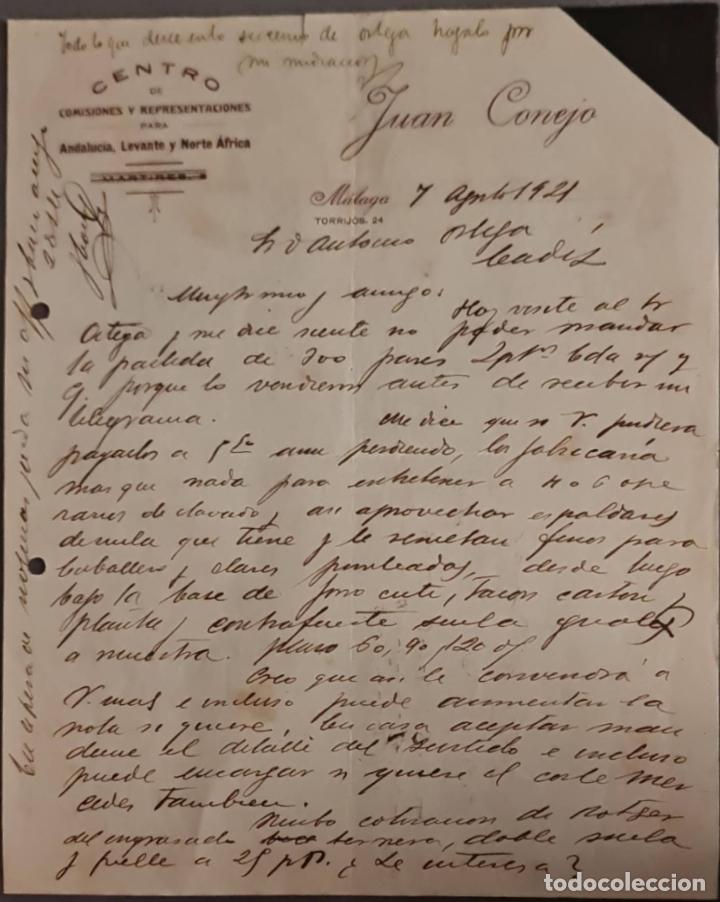 Todo lo que desee en lo sucesivo de Ortega hagalo por
mi mediacion
CENTRO
DE
COMISIONES Y REPRESENTACIONES
PARA
Andalucía, Levante y Norte África
MARTIRES,
Juan Conejo
Málaga 7 Agosto 1921
TORRIJOS, 24
Sr D Antonio Ortega
Cadiz
Muy Sr mio y amigo:
Hoy visite al Sr
Ortega y me dice siente no poder mandar
la partida de 300 pares 2 pts
porque lo vendieron antes de recibir mi
telegrama.
Me dice que si V. pudiera
pagarlos a aun perdiendo, los fabricaria
mas que nada para entretener a 4 o 6 ope
rarios de clavado, y asi aprovechar espaldares
de suela que tiene y le rematan finos para
caballero, y claros punteados, desde luego
bajo la base de forro cuti, tacon carton
planta y contrafuerte suela igual
a muestra. plazo 60, 90 y 120 d/
Creo que asi le convendrá a
V. mas e incluso puede aumentar la
nota si quiere, En caso aceptar man
deme el detalle del surtido e incluso
puede encargar si quiere el corte Mer
cedes tambien.
cotizacion de Rotger
del engrasado ternera, doble suela
y pielle a 25 pts. ¿Le interesa?
En espera de noticias queda su aff. y buen amigo
todocoleccion
todocoleccion.net